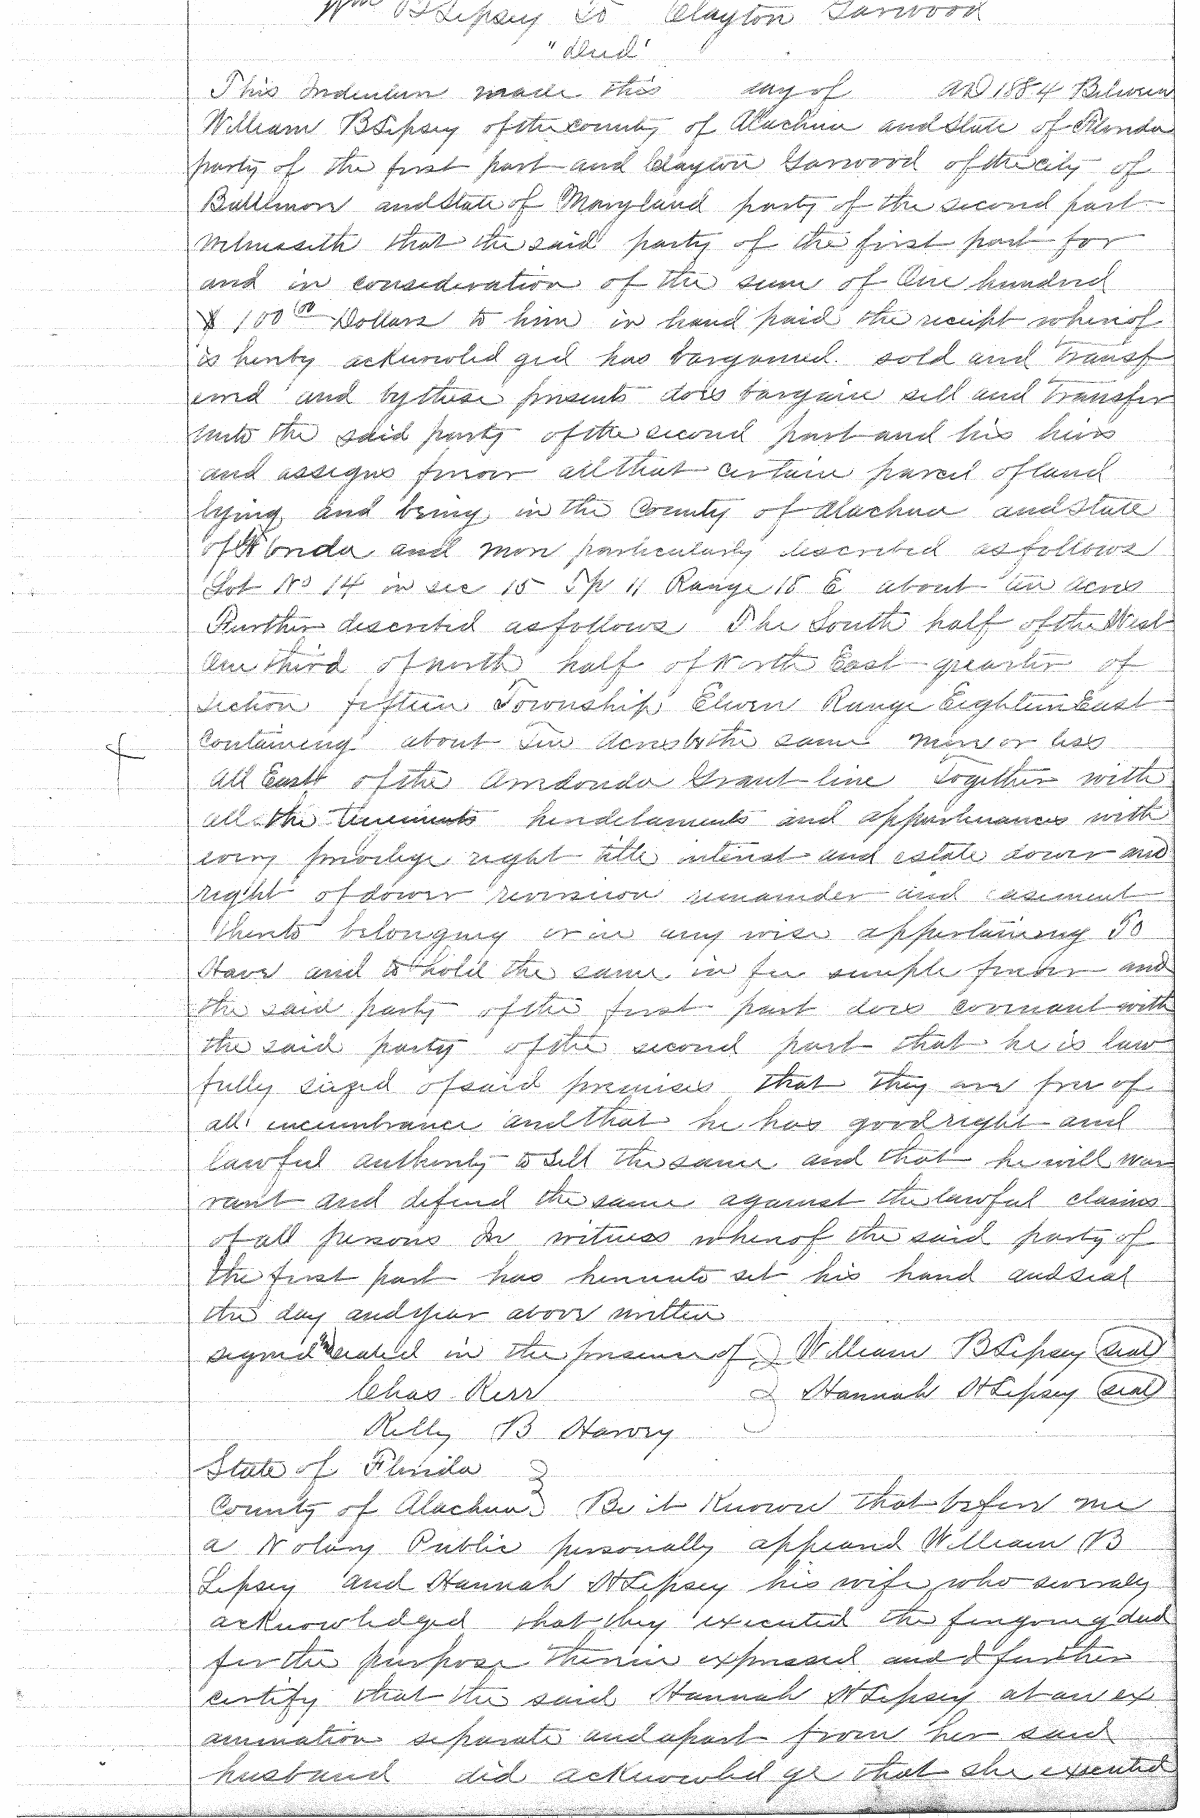 Wm B Lipsey To Clayton Garwood
"deed"
This Indenture made this day of AD 1884 Between
William B Lipsey of the county of Alachua and State of Florida
party of the first part and Clayton Garwood of the city of
Baltimore and State of Maryland party of the second part
Witnesseth that the said party of the first part for
and in consideration of the sum of One hundred
$ 100 00 Dollars to him in hand paid the receipt whereof
is hereby acknowledged has bargained sold and transf
erred and by these presents does bargain sell and transfer
unto the said party of the second part and his heirs
and assigns forever all that certain parcel of land
lying and being in the County of Alachua and State
of Florida and more particularly described as follows
Lot No 14 in sec 15 Tp 11 Range 18 E about ten acres
Further described as follows The South half of the West
One third of north half of North East quarter of
section fifteen Township Eleven Range Eighteen East
Containing about Ten Acres be the same more or less
All East of the Arredondo Grant line Together with
all the tenements hereditaments and appurtenances with
every privilege right title interest and estate dower and
right of dower reversion remainder and easement
thereto belonging or in any wise appertaining To
Have and to hold the same in fee simple forever and
the said party of the first part does covenant with
the said party of the second part that he is law
fully siezed of said premises that they are free of
all incumbrance and that he has good right and
lawful authority to sell the same and that he will war
rant and defend the same against the lawful claims
of all persons In witness whereof the said party of
the first part has hereunto set his hand and seal
the day and year above written
signed and sealed in the presence of William B Lipsey seal
Chas Kerr Hannah H Lipsey seal
Kelly B Harvey
State of Florida
County of Alachua Be it Known that before me
a Notary Public personally appeared William B
Lipsey and Hannah H Lipsey his wife who severaly
acknowledged that they executed the foregoing deed
for the purpose therein expressed and I further
certify that the said Hannah H Lipsey at an ex
amination separate and apart from her said
husband did acknowledge that she executed